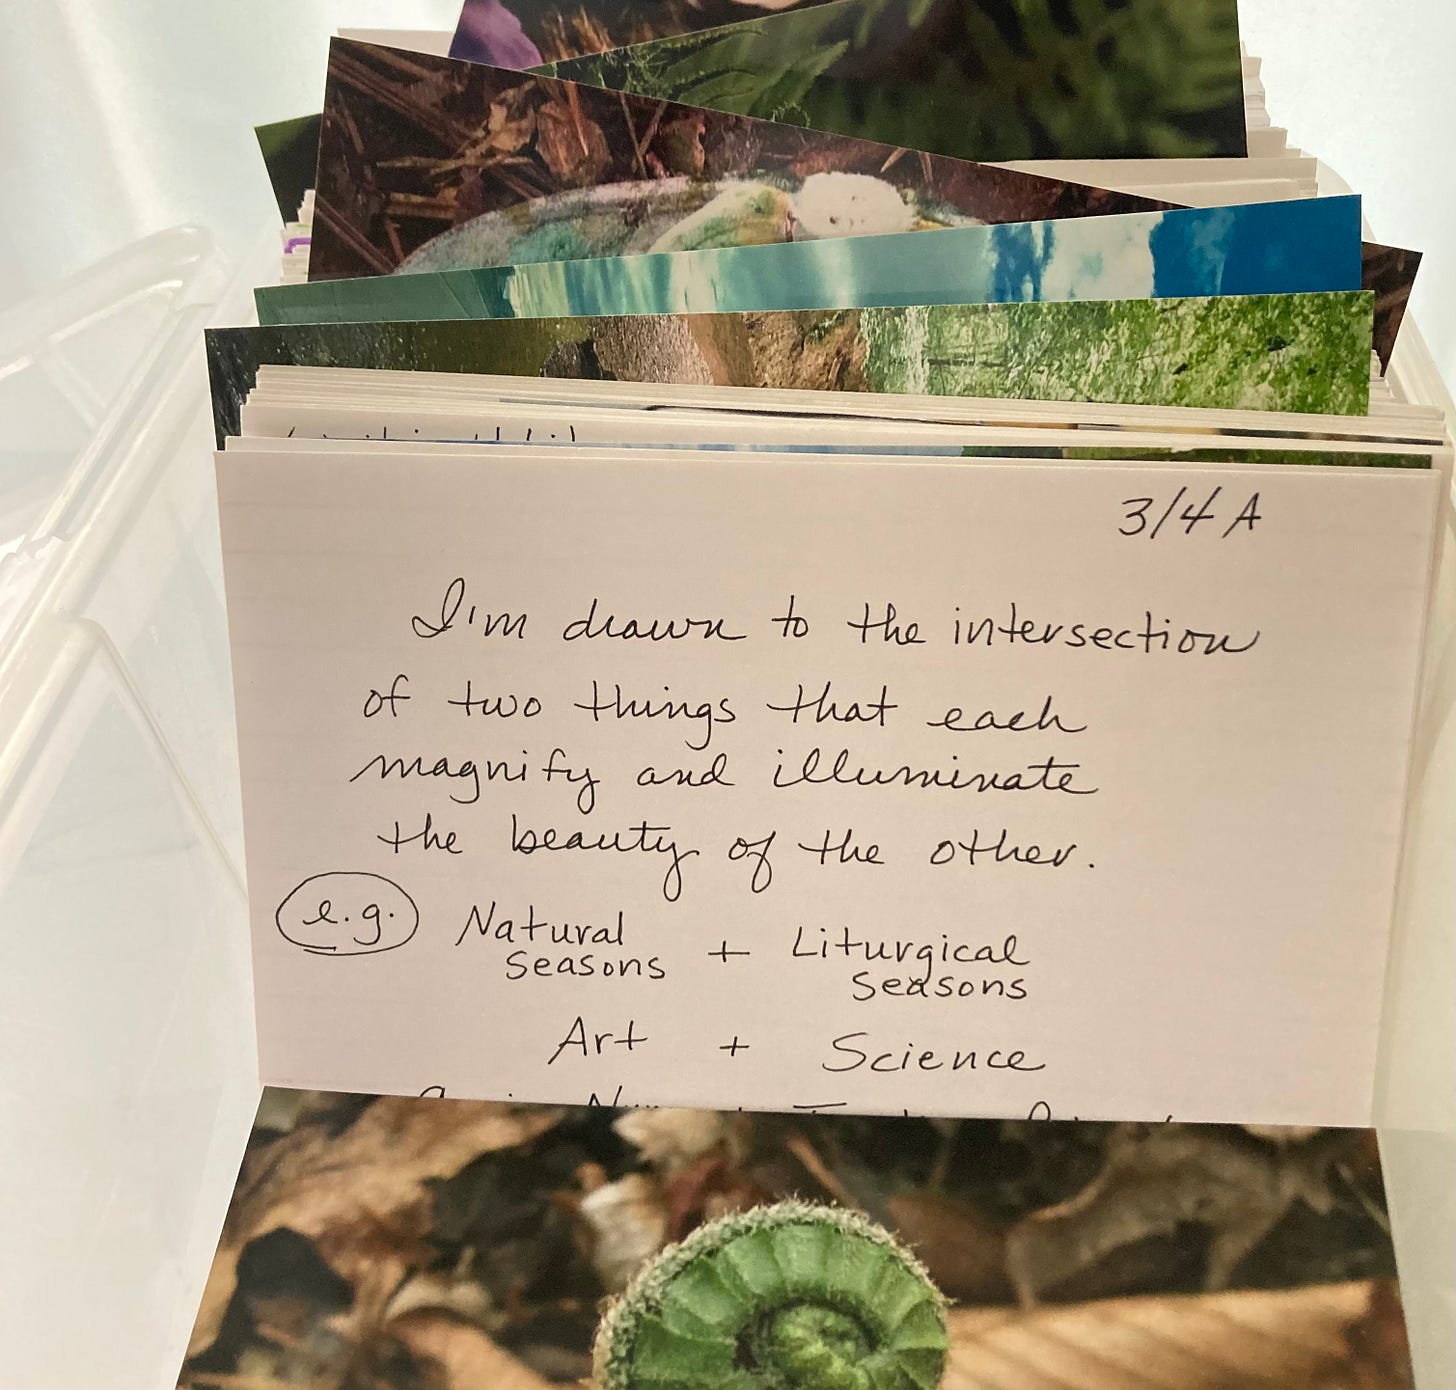 3/4 A
I'm drawn to the intersection
of two things that each
magnify and illuminate
the beauty of the other.
e.g. Natural + Liturgical
seasons seasons
Art + Science